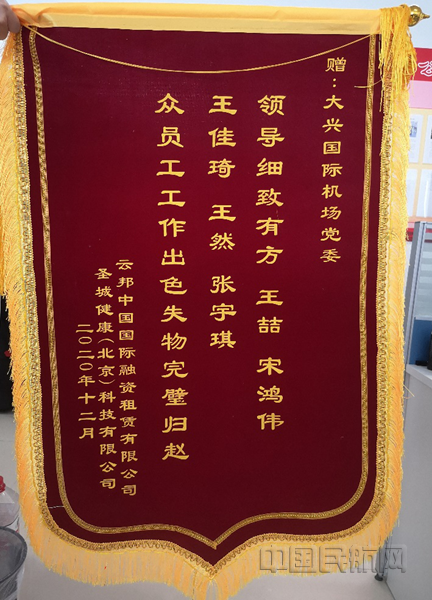 赠：大兴国际机场党委
领导细致有方 王喆 宋鸿伟
王佳琦 王然 张宇琪
众员工工作出色失物完璧归赵
云邦中国国际融资租赁有限公司
圣城健康（北京）科技有限公司
二〇二〇年十二月
中国民航网